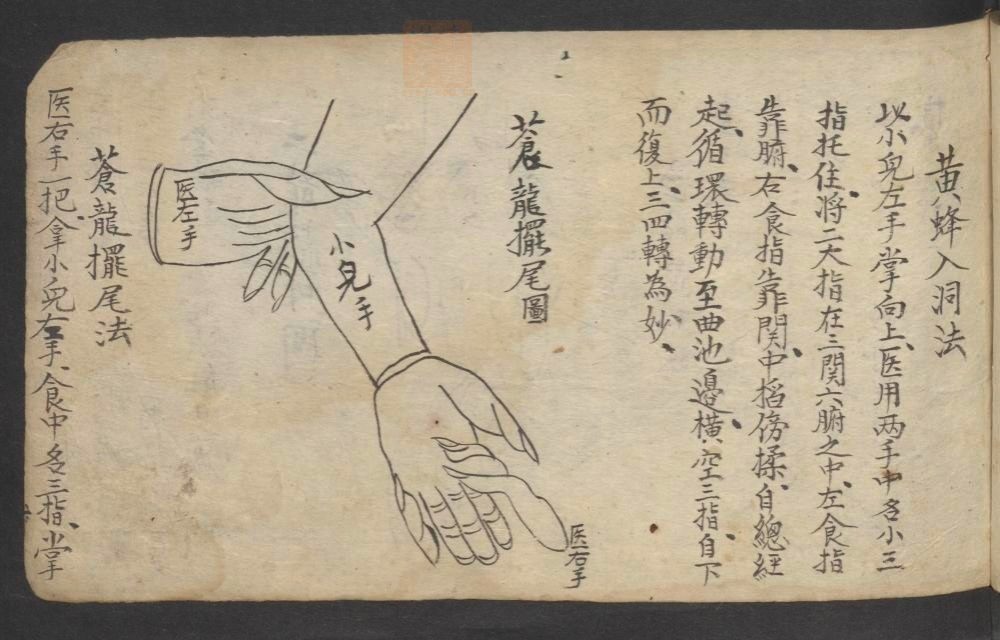 黄蜂入洞法
以小兒左手掌向上、医用两手中名小三
指托住、將二大指在三関六腑之中、左食指
靠腑、右食指靠関、中掐傍揉、自總經
起、循環轉動至曲池邊、横空三指、自下
而復上、三四轉為妙、
蒼龍擺尾圖
医左手
小兒手
医右手
蒼龍擺尾法
医右手一把、拿小兒右手、食中名三指、掌